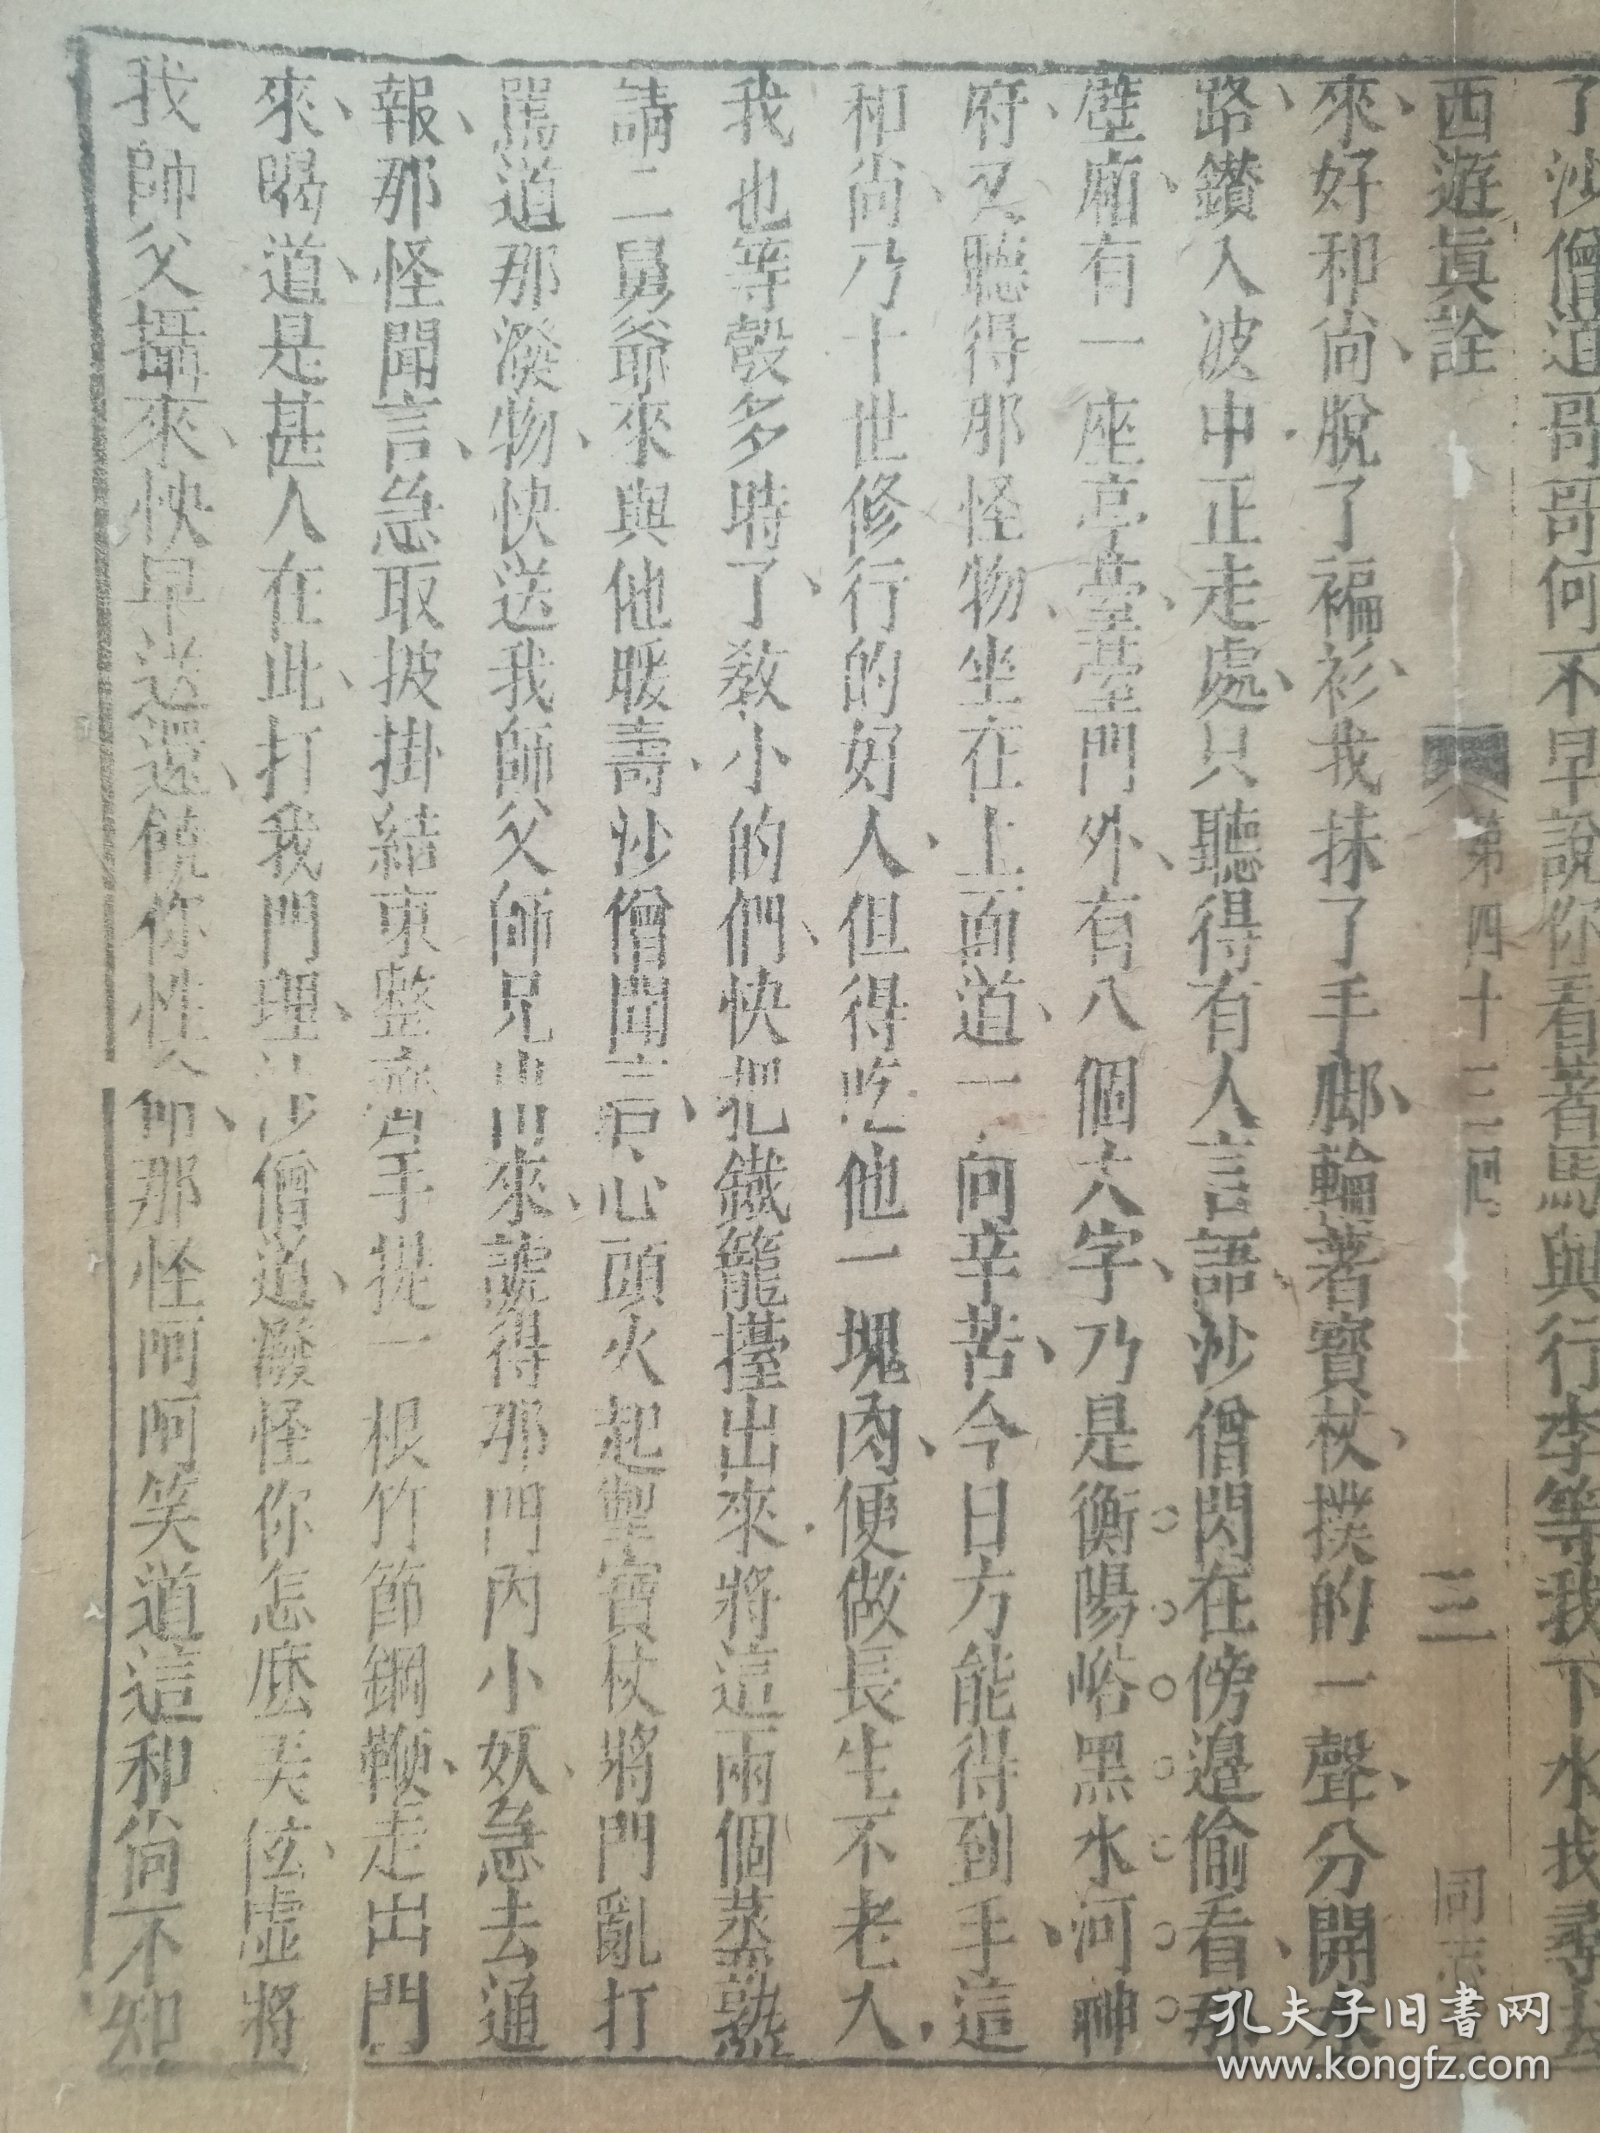 了沙僧道哥哥何不早說你看著馬與行李等我下水找尋去
西遊眞詮
第四十三囘
三
同志
來好和尚脫了褊衫我抹了手脚輪著寶杖撲的一聲分開水
路鑚入波中正走處只聽得有人言語沙僧閃在傍邉偷看那
壁廂有一座亭臺臺門外有八個大字乃是衡陽峪黑水河神
府又聽得那怪物坐在上面道一向辛苦今日方能得到手這
和尚乃十世修行的好人但得吃他一塊肉便做長生不老人
我也等彀多時了教小的們快把鐵籠擡出來將這兩個蒸熟
請二舅爺來與他暖壽沙僧聞言心頭火起掣寶杖將門亂打
罵道那潑物快送我師父師兄出來諕得那門內小妖急去通
報那怪聞言急取披掛結束整齊手提一根竹節鋼鞭走出門
來喝道是甚人在此打我門哩沙僧道潑怪你怎麽弄伭虛將
我師父攝來快早送還饒你性命那怪呵呵笑道這和尚不知
孔夫子旧书网
www.kongfz.com